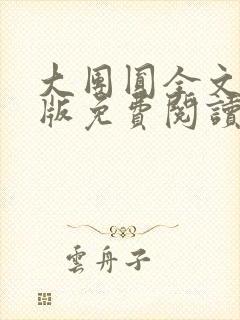 大團圓全文
版免費閱讀
雲舟子